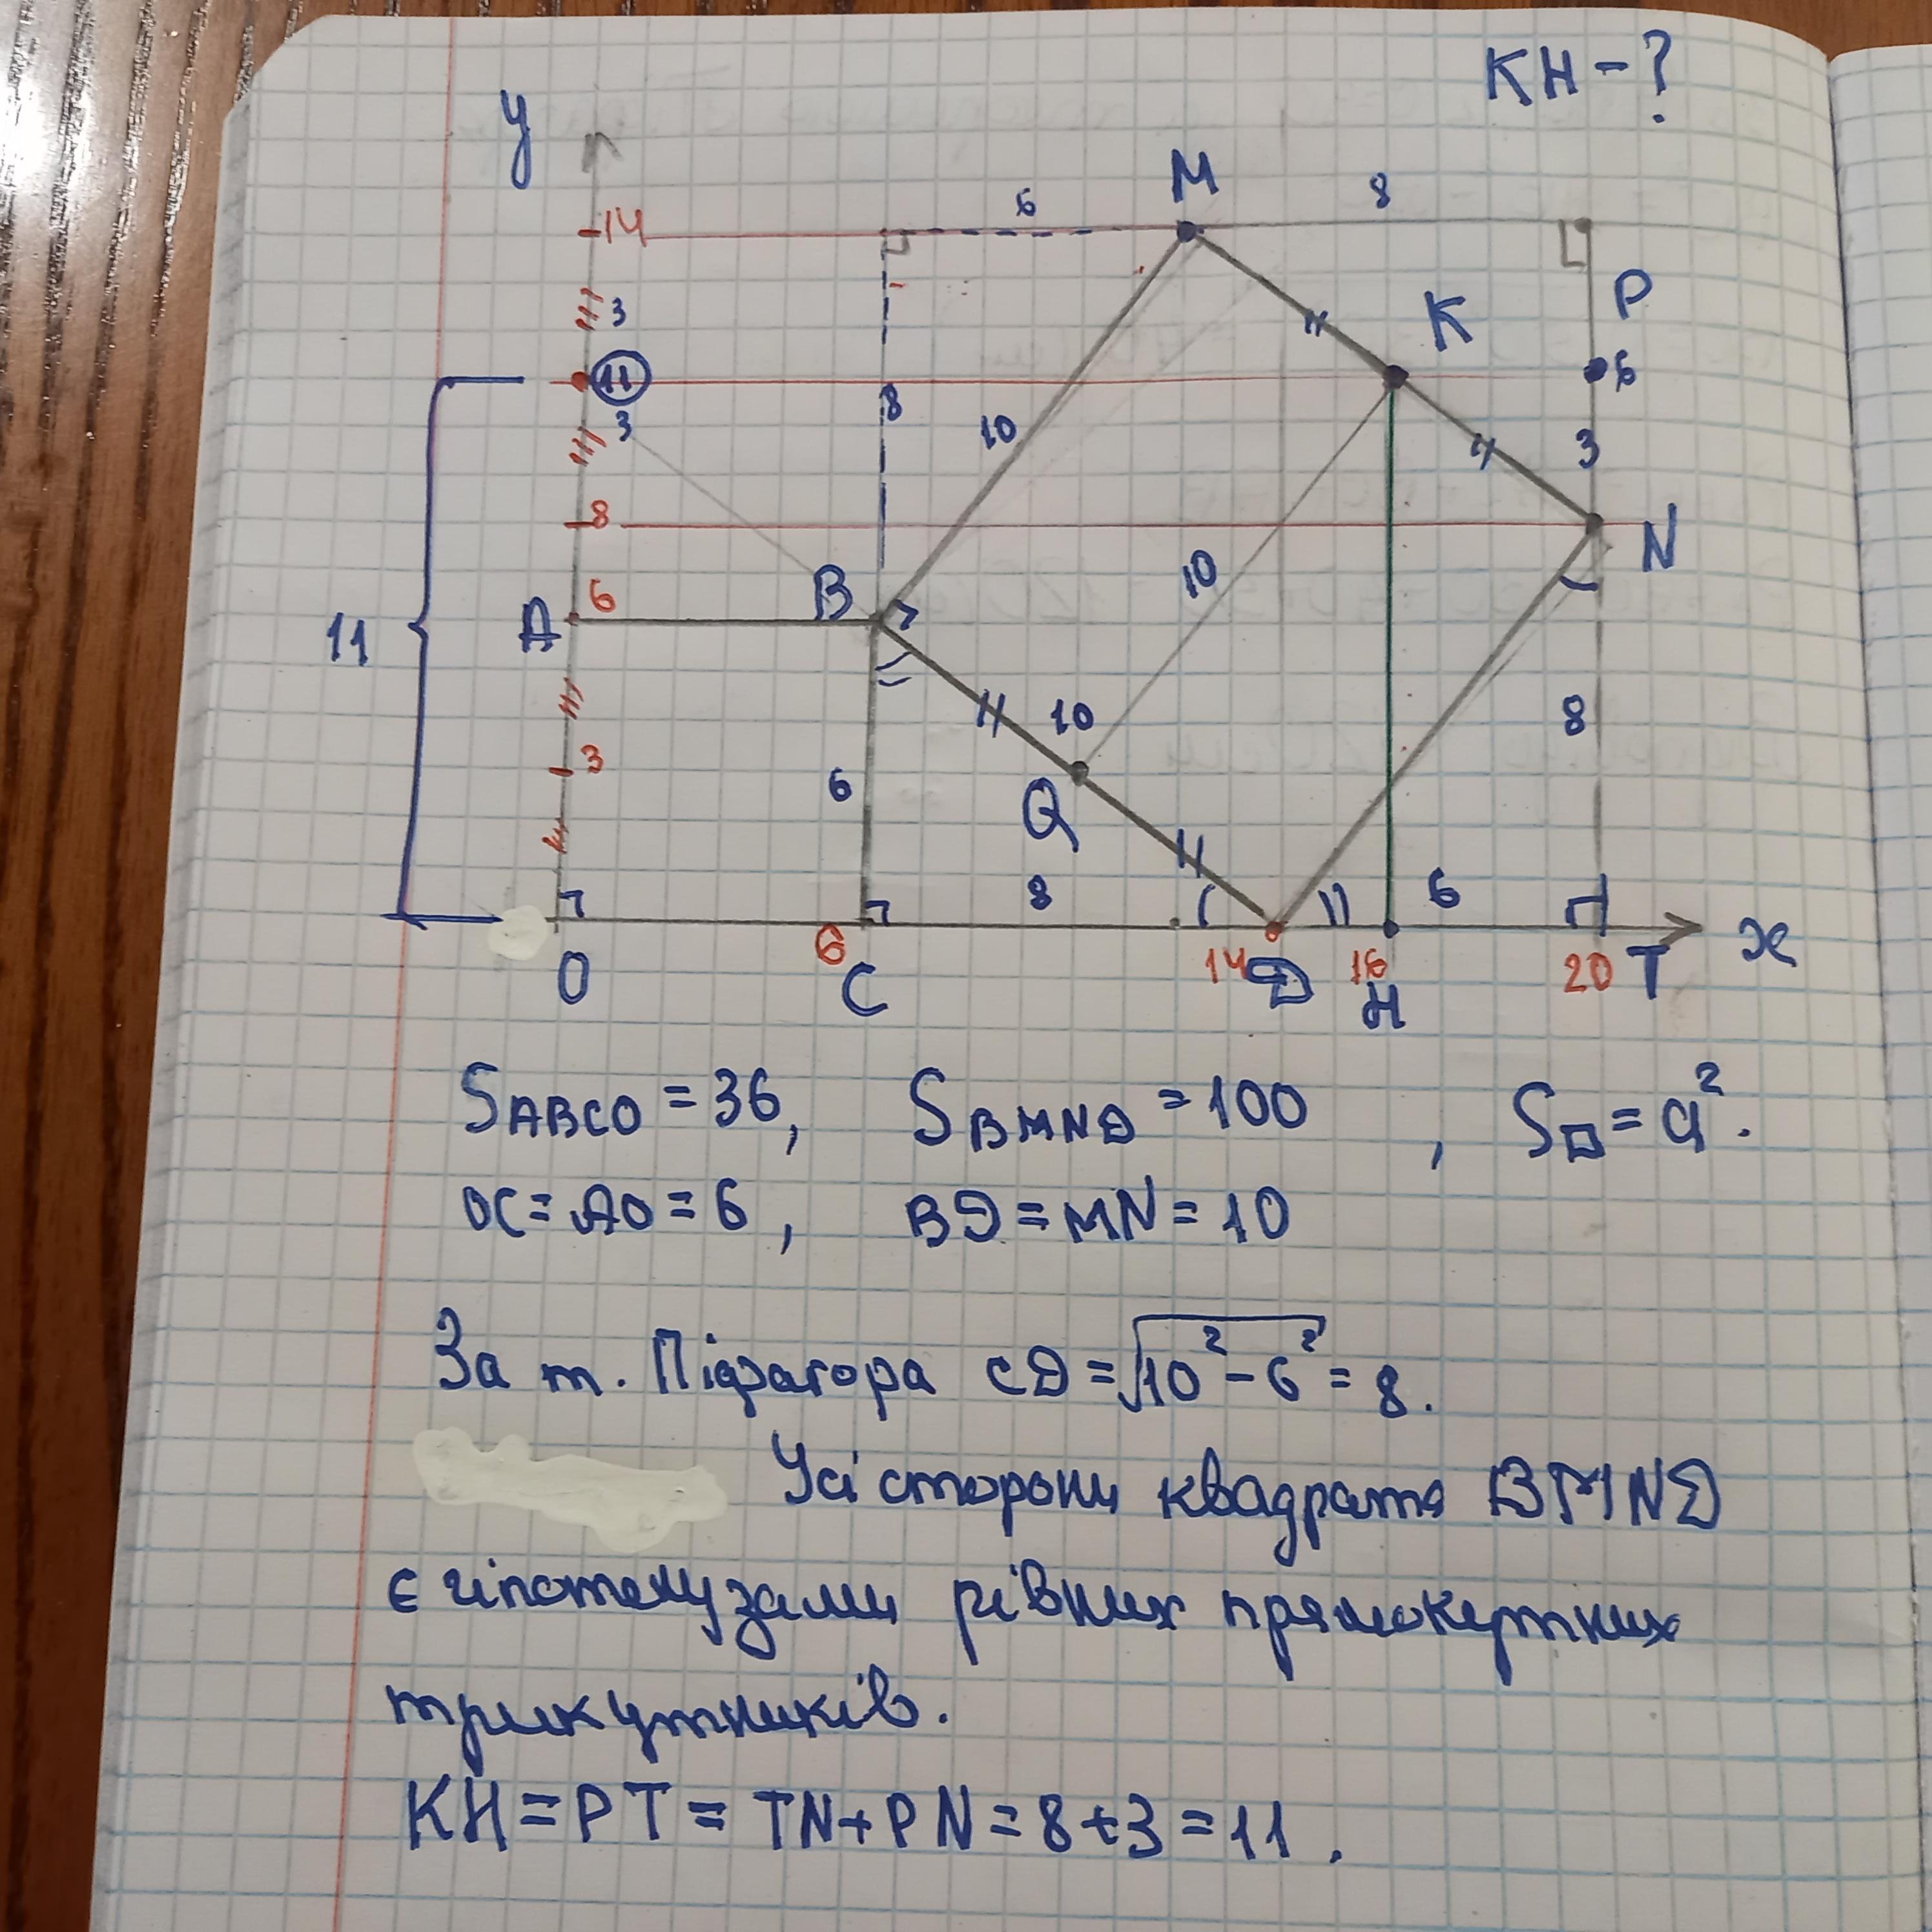 KH - ?
y
M
6
8
14
3
P
K
11
6
3
8
10
3
8
N
B
10
6
A
11
8
10
6
Q
3
8
6
6
14
16
20
O
C
D
H
T
x
S ABCO = 36, S BMND = 100, S□ = a².
OC = AO = 6, BD = MN = 10
За т. Піфагора CD = √10² - 6² = 8.
Усі сторони квадрата BMND
є гіпотенузами рівних прямокутних
трикутників.
KH = PT = TN + PN = 8 + 3 = 11.